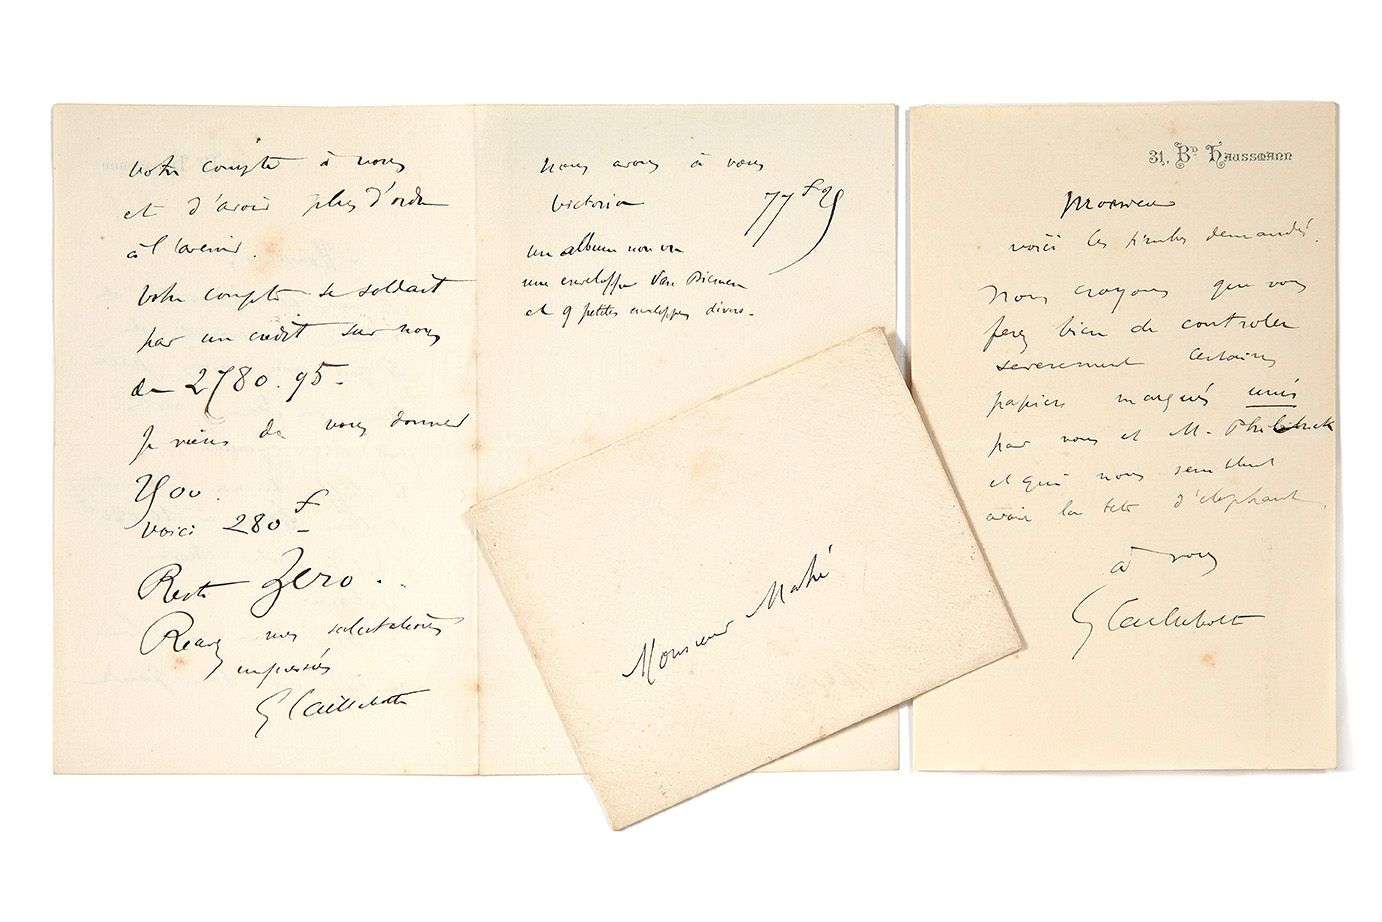 votre compte à nous
et d'avoir plus d'ordre
à l'avenir.
Votre compte se soldait
par un crédit sur nous
de 2780.95 -
Je viens de vous donner
voici 280 f
Reste Zero ..
Recevez mes salutations
empressées
G Caillebotte
Nous avons à vous
Victoria
77 f 25
un album non vu
une enveloppe Van Diemen
et 9 petites enveloppes divers -
Monsieur Mahé
31, Bd HAUSSMANN
Monsieur
voici les timbres demandés.
Nous croyons que vous
ferez bien de controler
severement certains
papiers marqués unis
par vous et M. Philbrick
et qui nous semblent
avoir la tete d'elephant.
à vous
G Caillebotte